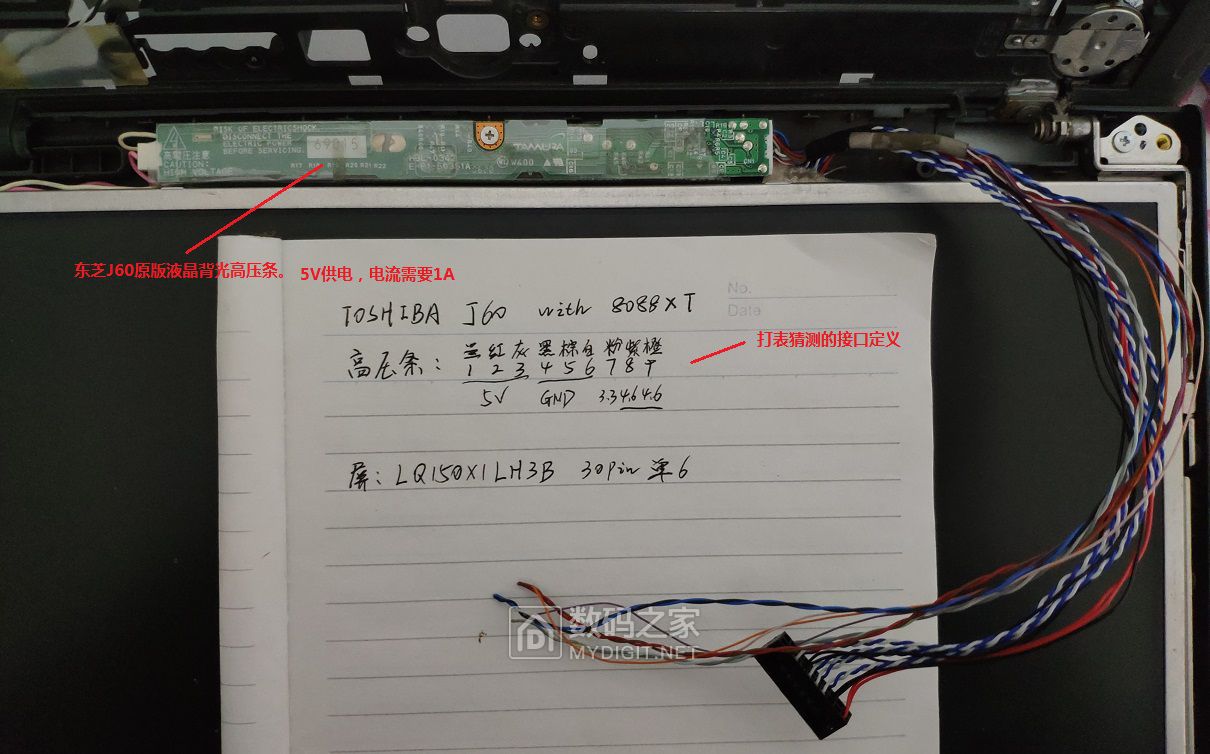 RISK OF ELECTRIC SHOCK
DISCONNECT THE
ELECTRIC POWER
BEFORE SERVICING.
高電圧注意
CAUTION:
HIGH VOLTAGE
69215
TAMURA
W400
CN1
东芝J60原版液晶背光高压条。 5V供电，电流需要1A
No.
Date
TOSHIBA J60 with 8088XT
打表猜测的接口定义
高压条： 兰红灰黑棕白粉紫橙
1 2 3 4 5 6 7 8 9
5V GND 3.3 4.6 4.6
屏：LQ150X1LH3B 30Pin 单6
数码之家
MYDIGIT.NET